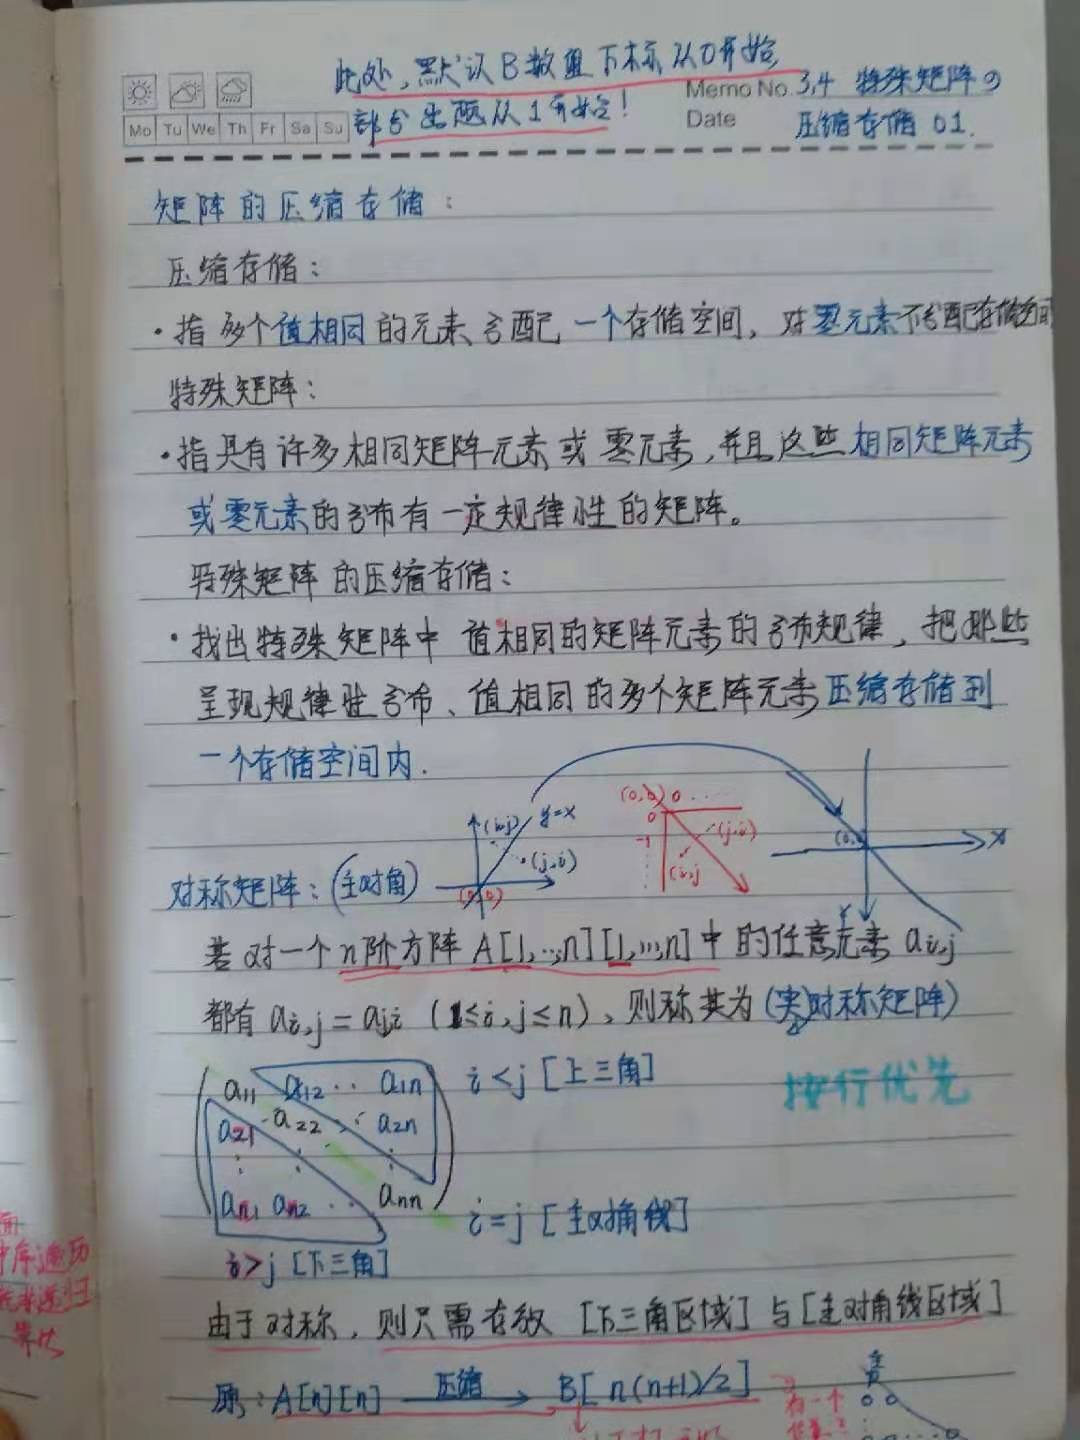 此处,默认B数组下标从0开始,
部分出题从1开始!
Memo No. 3.4 特殊矩阵の
Mo Tu We Th Fr Sa Su
Date 压缩存储 01.
矩阵的压缩存储:
压缩存储:
·指多个值相同的元素分配一个存储空间,对零元素不分配存储空间
特殊矩阵:
·指具有许多相同矩阵元素或零元素,并且这些相同矩阵元素
或零元素的分布有一定规律性的矩阵。
特殊矩阵的压缩存储:
·找出特殊矩阵中值相同的矩阵元素的分布规律,把那些
呈现规律性分布、值相同的多个矩阵元素压缩存储到
一个存储空间内.
(i,j) y=x
(j,i)
(0,0)
(0,0) 0 ....
0
-1
(j,i)
(i,j
(0,
x
Y
对称矩阵:(主对角)
若对一个n阶方阵A[1,...,n][1,...,n]中的任意元素 ai,j
都有 ai,j = aji (1≤i,j≤n),则称其为(实)对称矩阵)
a11 a12 ·· a1n
i<j [上三角]
按行优先
a21 a22 a2n
an1 an2 ·· ann
i=j [主对角线]
i>j [下三角]
由于对称,则只需存放[下三角区域]与[主对角线区域]
原:A[n][n] 压缩 B[n(n+1)/2]
有一个
中序遍历